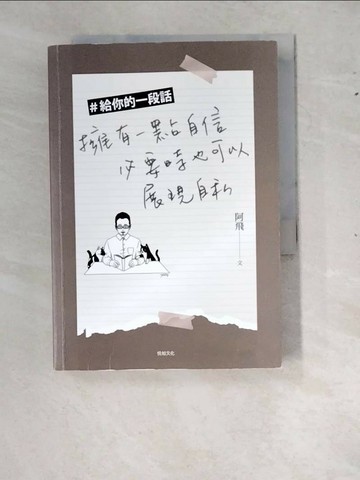 #給你的一段話
擁有一點自信
必要時也可以
展現自私
阿飛
著
悅知文化